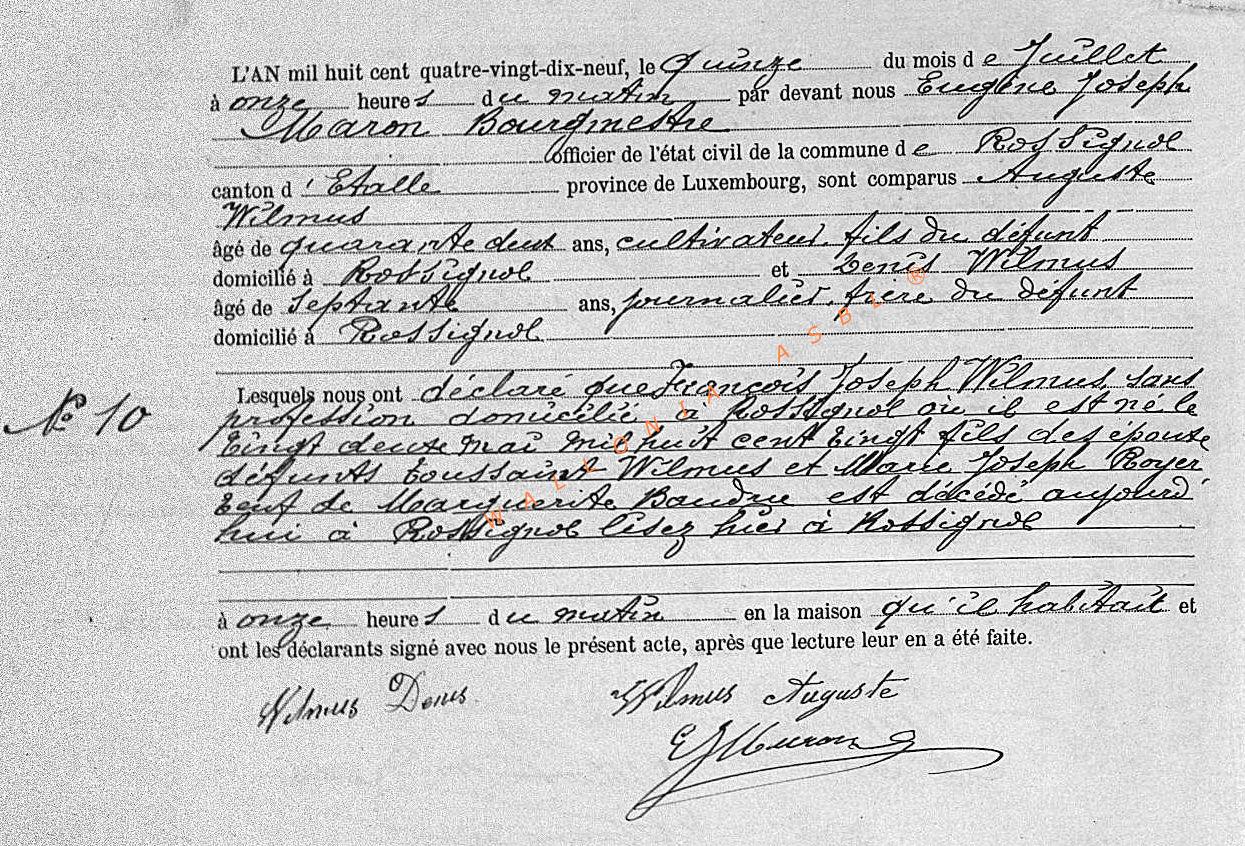 L'AN mil huit cent quatre-vingt-dix-neuf, le quinze du mois de Juillet
à onze heures du matin par devant nous Eugène Joseph
Maron Bourgmestre
officier de l'état civil de la commune de Rossignol
canton d'Etalle province de Luxembourg, sont comparus Auguste
Wilmus
âgé de quarante deux ans, cultivateur, fils du défunt
domicilié à Rossignol et Denis Wilmus
âgé de septante ans, journalier, frère du défunt
domicilié à Rossignol
Lesquels nous ont déclaré que François Joseph Wilmus, sans
N° 10 profession domicilié à Rossignol où il est né le
vingt deux mai mil huit cent vingt fils des époux
défunts Toussaint Wilmus et Marie Joseph Royer
veuf de Marguerite Baudru est décédé aujourd'
hui à Rossignol lisez hier à Rossignol
à onze heures du matin en la maison qu'il habitait et
ont les déclarants signé avec nous le présent acte, après que lecture leur en a été faite.
Wilmus Denis Wilmus Auguste
EJMaron
WALLONIA ASBL ®